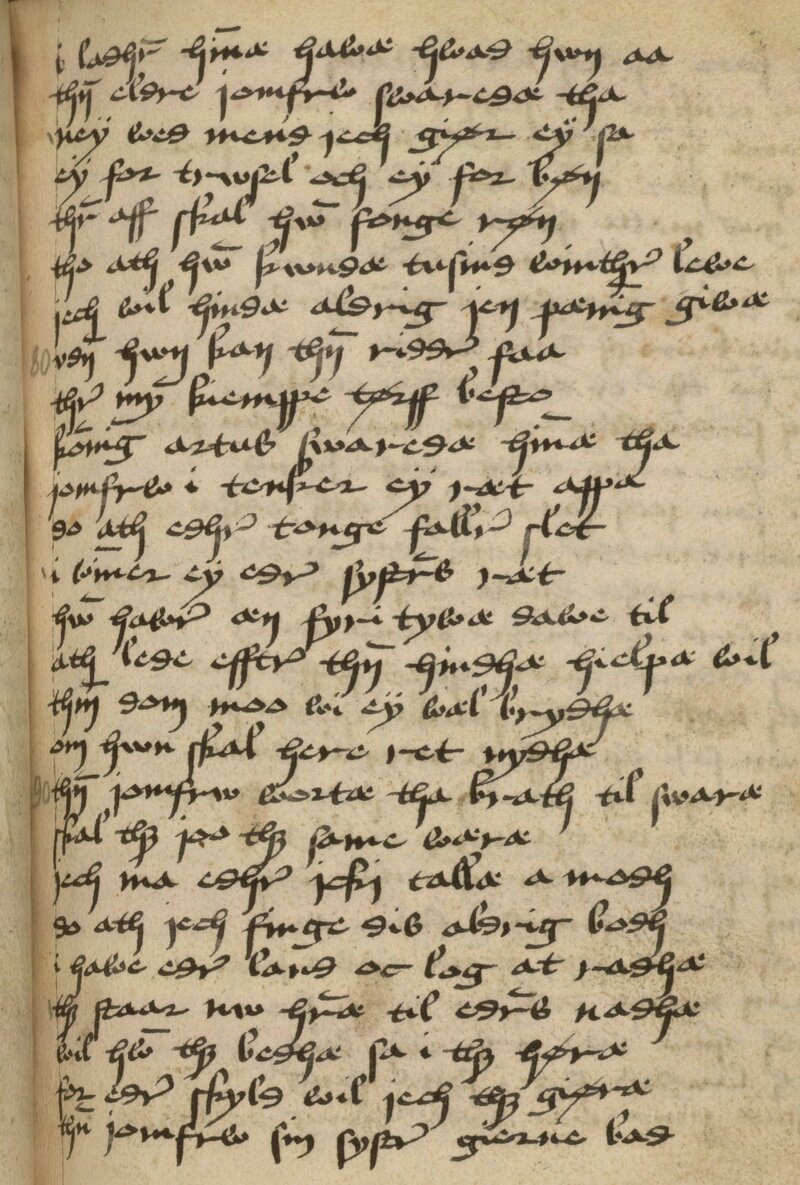 i ladhr̄ hīnæ hawæ hwad hwn aa
thn̄ eldre jomfrw swaredæ tha
ney wed mend jech giør ey sa
ey for trwsel och ey for bøn
thr̄ aff skal hw̄ fonge røn
tho ath hw̄ kwndæ tusind winthr̄ lewe
jech wil hindæ aldrig jen pænīg giwæ
80 vdn̄ hwn kan thn̄ riddr̄ faa
thr̄ my̅ kiemppe tørff besto
kōnīg artus swaredæ hīnæ tha
jomfrw i tenker ey ræt appa
do ath edhr̄ tonge fallr̄ slet
i wīmer ey edr̄ systr̄s ræt
hw̄ hawr̄ æn fyritywæ dawe til
ath lede efftr̄ thn̄ hindhæ hielpæ wil
thīn dom moo wi ey wæl brydhæ
om hwn skal here ret nydhæ
90 thn̄ jomfrw wortæ tha brath til swaræ
skal thꝫ joo thꝫ same wæræ
jech ma edhr̄ jcki tallæ a modh
do ath jech finge dis aldrig bodh
i hawe edr̄ land oc log at radhæ
thꝫ staar nw hr̄æ til edr̄s nadhæ
wil hw̄ thꝫ bedhæ sa i thꝫ høræ
for edr̄ skyld wil jech thꝫ giøræ
thn̄ jomfrw sin systr̄ gierne bad